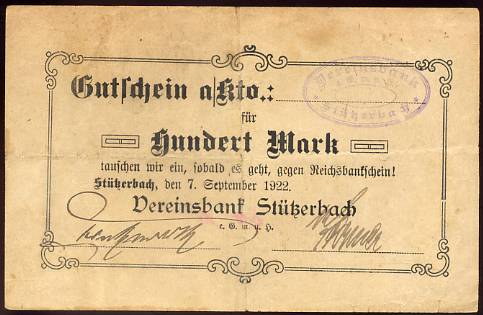 Gutschein a/Kto.:
Vereinsbank
Stützerbach
für
Hundert Mark
tauschen wir ein, sobald es geht, gegen Reichsbankschein!
Stützerbach, den 7. September 1922.
Vereinsbank Stützerbach
e. G. m. u. H.